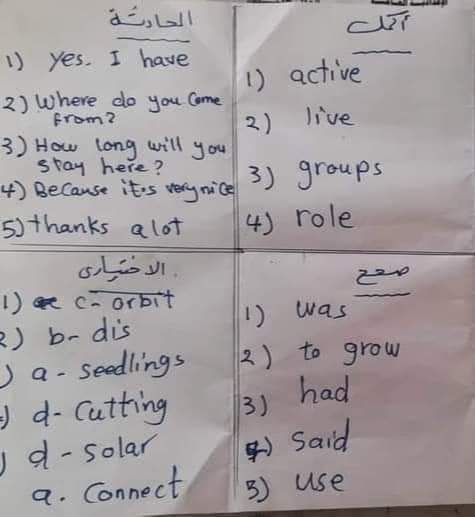 الحادثة
1) yes. I have
2) Where do you Come
from?
3) How long will you
stay here?
4) Because it's very nice
5) thanks a lot
أكمل
1) active
2) live
3) groups
4) role
الاختياري
1) c- orbit
2) b- dis
) a - seedlings
) d- Cutting
) d - solar
a. Connect
صحح
1) was
2) to grow
3) had
4) said
5) use